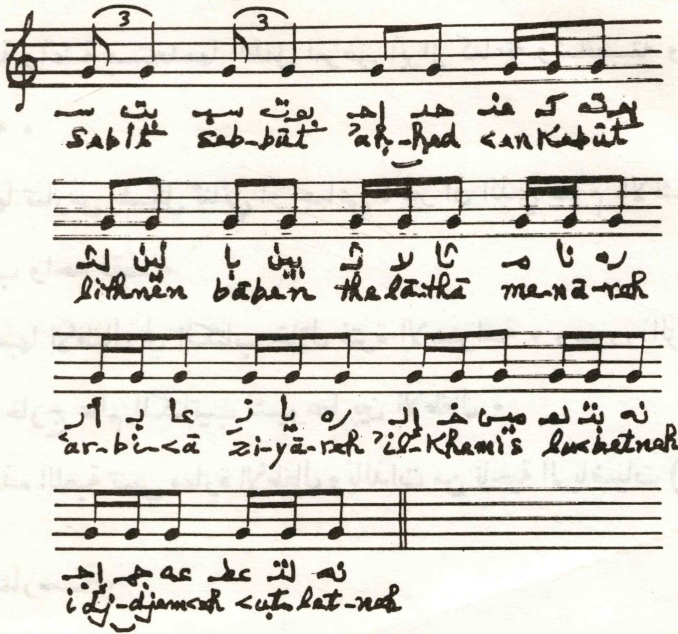 3 3
سـ بت سبـ بوت احـ حد عنـ كـ بوته
Sabit sab-būt 'aḥ-ḥad <ankabūt
لثـ نين با بين ثـ لا ثا مـ نا ره
lithnēn bābēn thalā-thā me-nā-reh
أر بـ عا ز يا ره إلـ خـ ميس لعـ بتـ نه
'ar-bi-<ā zi-yā-reh 'il-khamīs lu<betneh
اجـ جمـ عه عطـ لتـ نه
idj-djam<eh <uṭ lat-neh